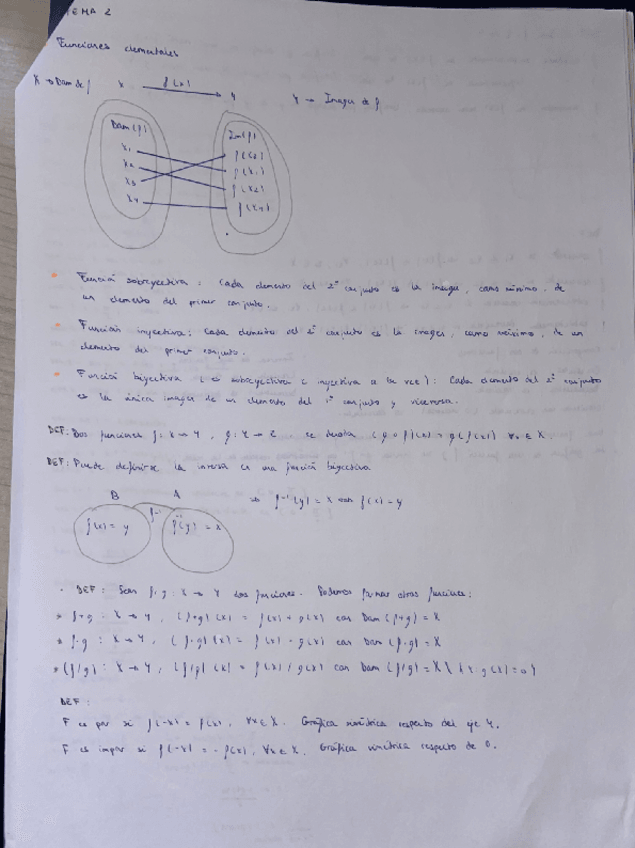 TEMA 2
Funciones elementales
X → Dom de f   x   f(x)   y   Y → Imagen de f
Dom(f)   Im(f)
x1   f(x3)
x2   f(x1)
x3   f(x2)
x4   f(x4)
• Función sobreyectiva: Cada elemento del 2º conjunto es la imagen, como mínimo, de
un elemento del primer conjunto.
• Función inyectiva: Cada elemento del 2º conjunto es la imagen, como máximo, de un
elemento del primer conjunto.
• Función biyectiva (es sobreyectiva e inyectiva a la vez): Cada elemento del 2º conjunto
es la única imagen de un elemento del 1º conjunto y viceversa.
DEF: Dos funciones f: X → Y, g: Y → Z se denotan (g o f)(x) = g(f(x)) ∀x ∈ X.
DEF: Puede definirse la inversa es una función biyectiva
B   A   ⇒ f⁻¹(y) = x con f(x) = y
f(x) = y   f⁻¹   f⁻¹(y) = x
· DEF: Sean f, g: X → Y dos funciones. Podemos formar otras funciones:
* f+g: X → Y, (f+g)(x) = f(x) + g(x) con Dom(f+g) = X
* f·g: X → Y, (f·g)(x) = f(x) · g(x) con Dom(f·g) = X
* (f/g): X → Y, (f/g)(x) = f(x)/g(x) con Dom(f/g) = X \ {x: g(x) = 0}
DEF:
F es par si f(-x) = f(x), ∀x ∈ X. Gráfica simétrica respecto del eje Y.
F es impar si f(-x) = -f(x), ∀x ∈ X. Gráfica simétrica respecto de 0.